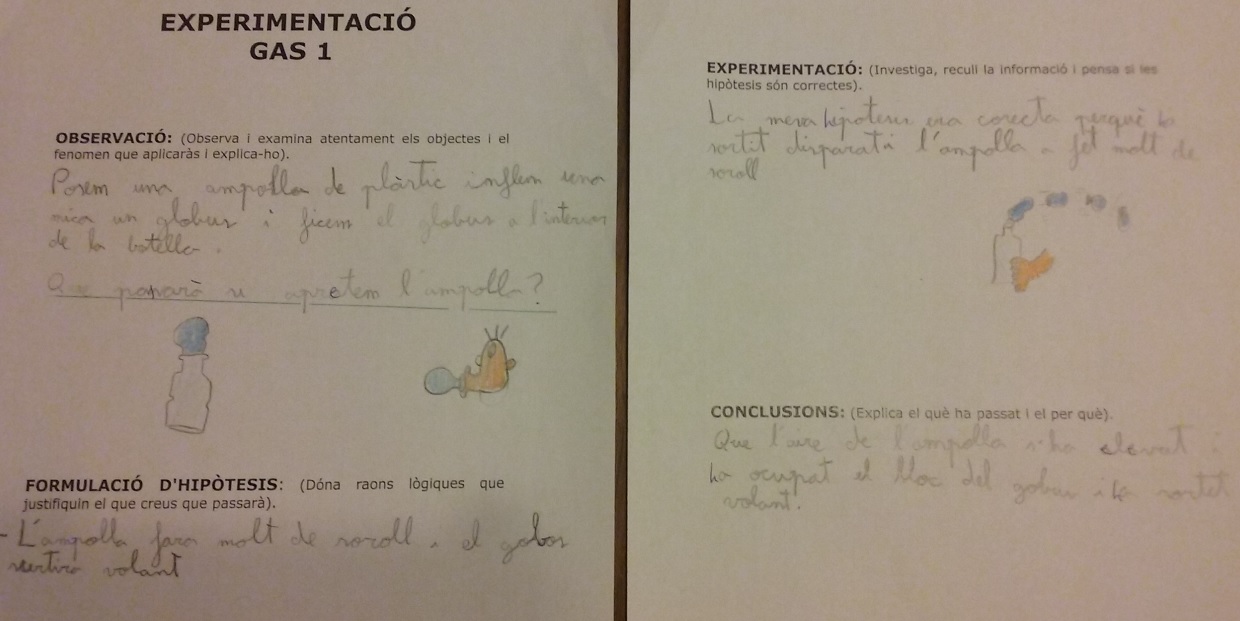 EXPERIMENTACIÓ
GAS 1
OBSERVACIÓ: (Observa i examina atentament els objectes i el
fenomen que aplicaràs i explica-ho).
Posem una ampolla de plàstic inflem una
mica un globus i ficem el globus a l'interior
de la botella.
Que passarà si apretem l'ampolla?
FORMULACIÓ D'HIPÒTESIS: (Dóna raons lògiques que
justifiquin el que creus que passarà).
- L'ampolla fara molt de soroll i el gobos
volant
EXPERIMENTACIÓ: (Investiga, recull la informació i pensa si les
hipòtesis són correctes).
La meva hipotesis era corecta perquè
sortit disparat i l'ampolla a fet molt de
soroll
CONCLUSIONS: (Explica el què ha passat i el per què).
Que l'aire de l'ampolla s'ha elevat i
ha ocupat el lloc del gobus i ha sortit
volant.